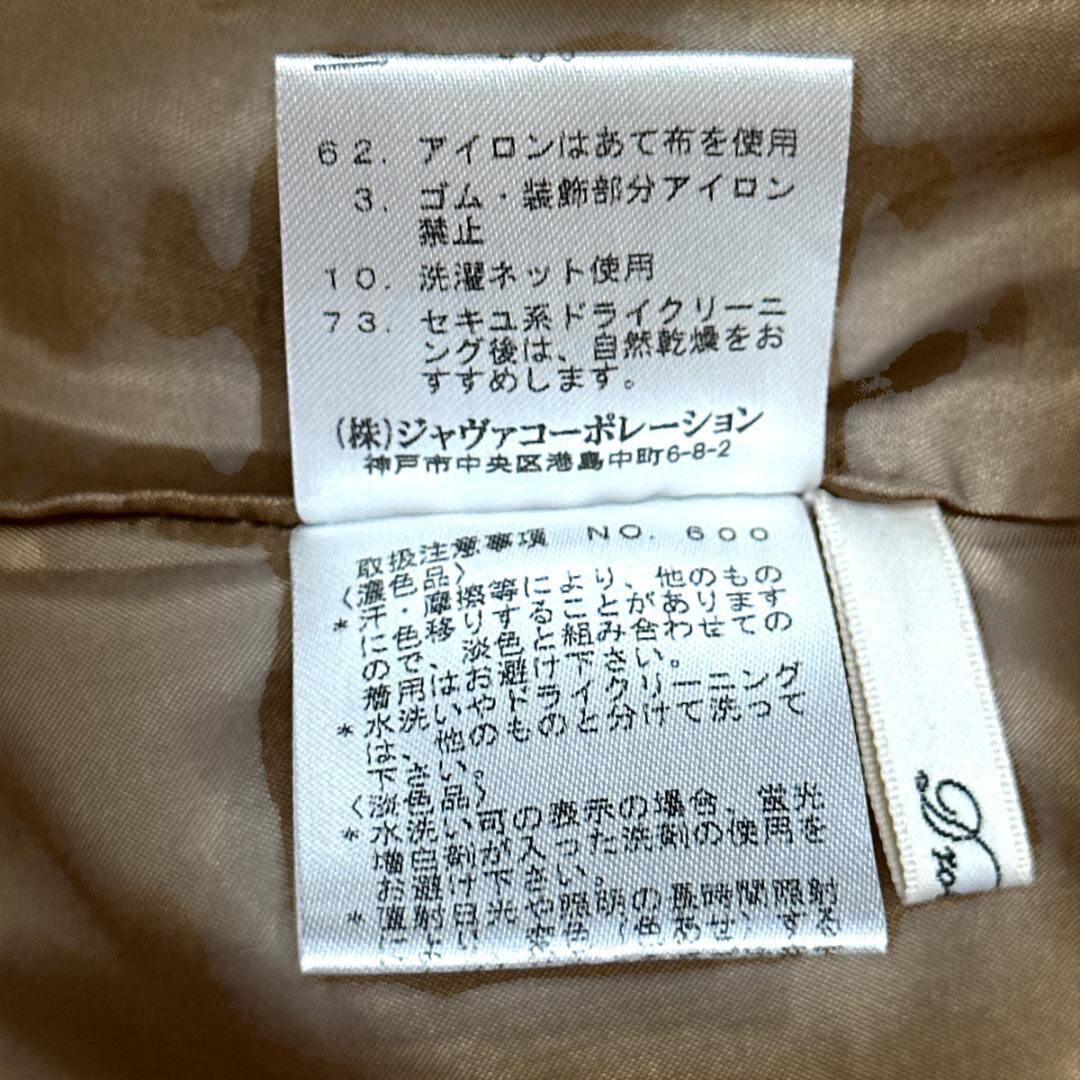 62. アイロンはあて布を使用
3. ゴム・装飾部分アイロン
禁止
10. 洗濯ネット使用
73. セキユ系ドライクリーニ
ング後は、自然乾燥をお
すすめします。
(株)ジャヴァコーポレーション
神戸市中央区港島中町6-8-2
取扱注意事項 NO. 600
〈濃色品〉
*汗・摩擦等により、他のもの
に色移りすることがあります
ので、淡色との組み合わせの
着用はお避け下さい。
*水洗い、ドライクリーニング
は、他のものと分けて洗って
下さい。
〈淡色品〉
*水洗い可の表示の場合、蛍光
増白剤が入った洗剤の使用を
お避け下さい。
*直射日光や照明の長時間照射